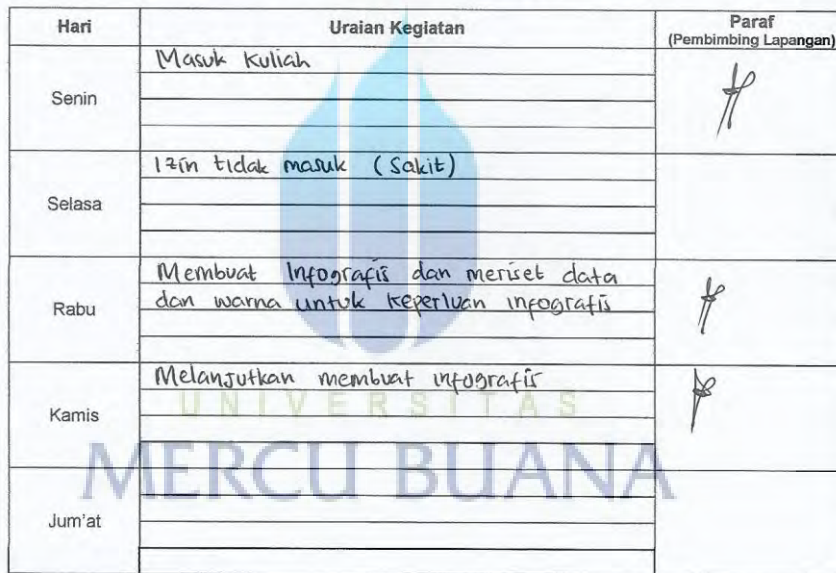 Hari Uraian Kegiatan Paraf
(Pembimbing Lapangan)
Senin
Masuk Kuliah
Selasa
Izin tidak masuk (Sakit)
Rabu
Membuat Infografis dan meriset data
dan warna untuk keperluan infografis
Kamis
Melanjutkan membuat infografis
UNIVERSITAS
MERCU BUANA
Jum'at